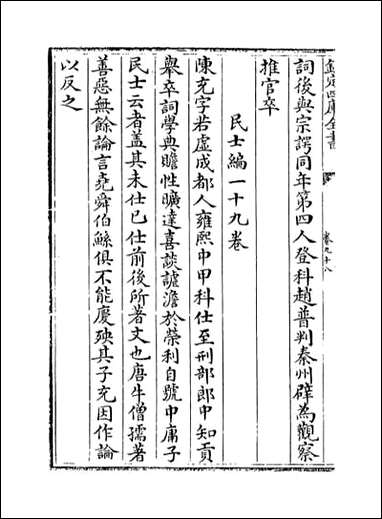 欽定四庫全書
卷九十八
詞後與宗諤同年第四人登科趙普判秦州辟為觀察
推官卒
民士編一十九卷
陳充字若虛成都人雍熙中甲科仕至刑部郎中知貢
舉卒詞學典贍性曠達喜談謔澹於榮利自號中庸子
民士云者蓋其未仕已仕前後所著文也唐牛僧孺著
善惡無餘論言堯舜伯鯀俱不能慶殃其子充因作論
以反之